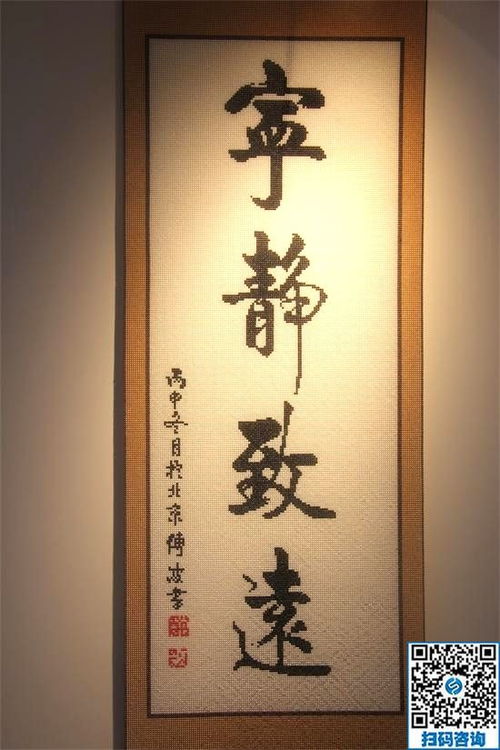 寧靜致遠
丙申冬月於北京傅波書
扫码咨询